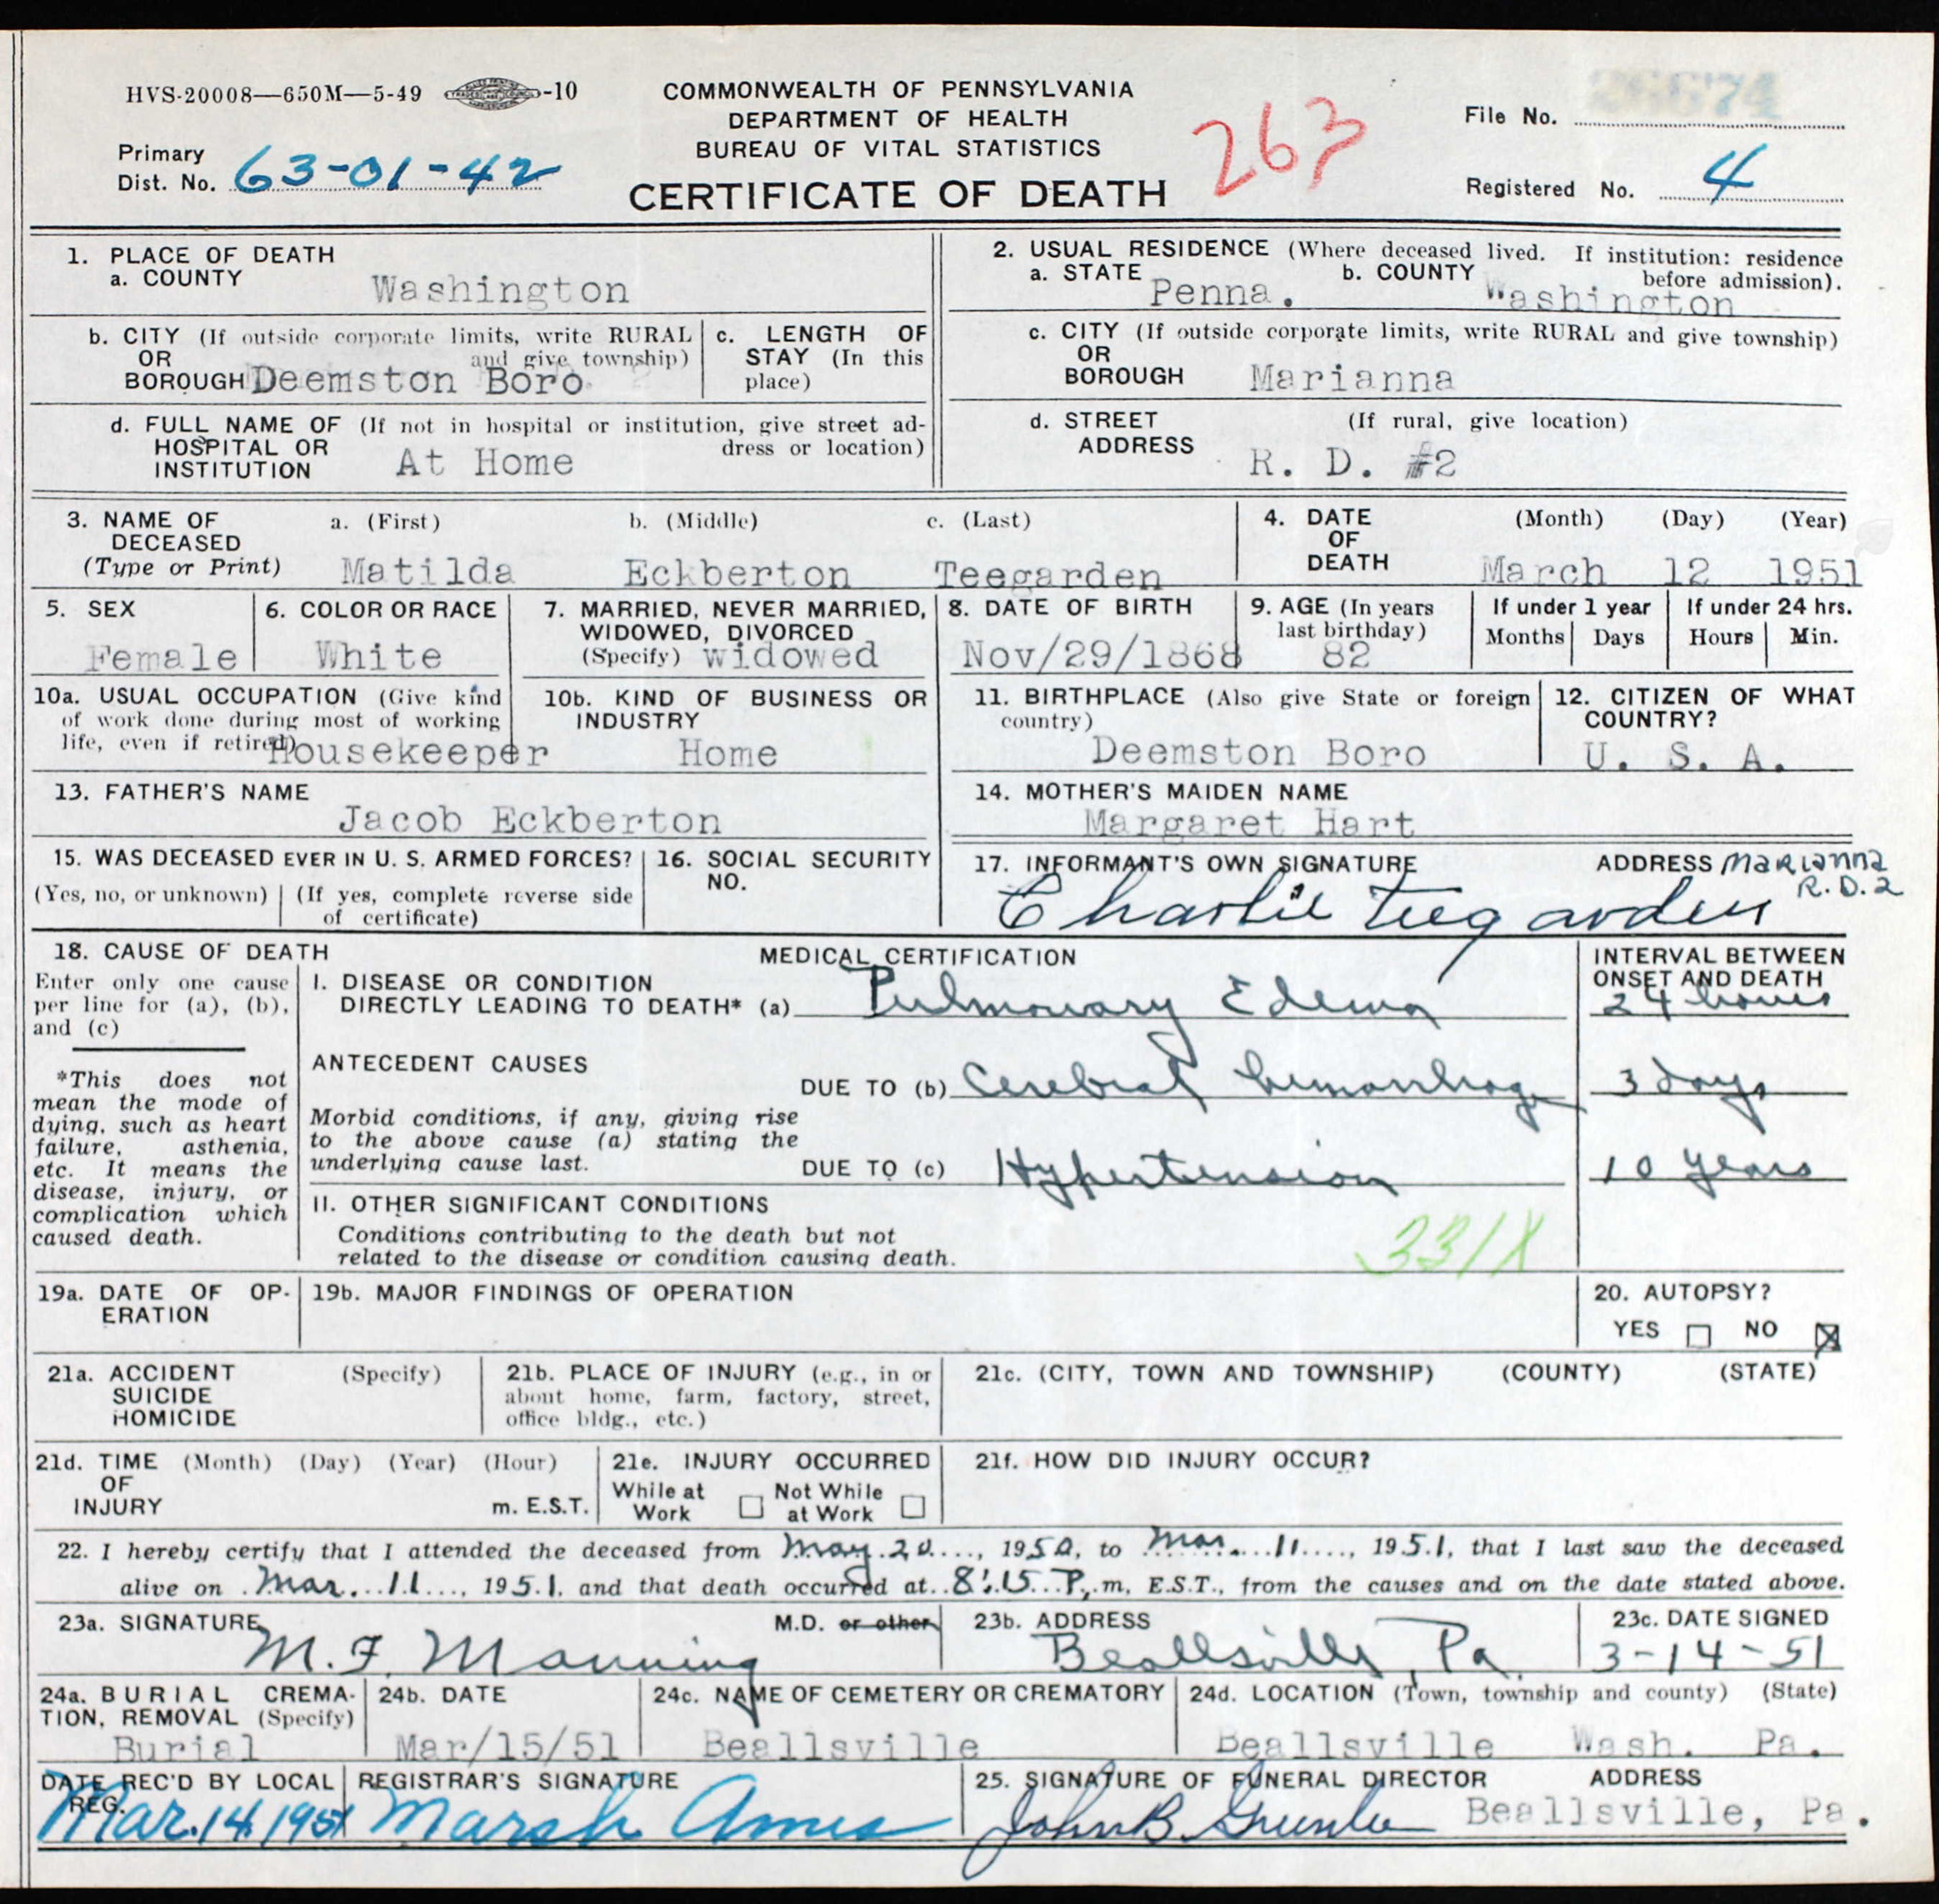 HVS-20008—650M—5-49 -10
COMMONWEALTH OF PENNSYLVANIA
DEPARTMENT OF HEALTH
BUREAU OF VITAL STATISTICS
CERTIFICATE OF DEATH
263
File No.
Primary
Dist. No. 63-01-42
Registered No. 4
1. PLACE OF DEATH
a. COUNTY Washington
2. USUAL RESIDENCE (Where deceased lived. If institution: residence before admission).
a. STATE Penna. b. COUNTY Washington
b. CITY (If outside corporate limits, write RURAL and give township)
OR
BOROUGH Deemston Boro
c. LENGTH OF
STAY (In this
place)
c. CITY (If outside corporate limits, write RURAL and give township)
OR
BOROUGH Marianna
d. FULL NAME OF (If not in hospital or institution, give street ad-
HOSPITAL OR dress or location)
INSTITUTION At Home
d. STREET (If rural, give location)
ADDRESS R. D. #2
3. NAME OF a. (First) b. (Middle) c. (Last)
DECEASED
(Type or Print) Matilda Eckberton Teegarden
4. DATE (Month) (Day) (Year)
OF
DEATH March 12 1951
5. SEX
Female
6. COLOR OR RACE
White
7. MARRIED, NEVER MARRIED,
WIDOWED, DIVORCED
(Specify) widowed
8. DATE OF BIRTH
Nov/29/1868
9. AGE (In years
last birthday)
82
If under 1 year
Months Days
If under 24 hrs.
Hours Min.
10a. USUAL OCCUPATION (Give kind
of work done during most of working
life, even if retired) Housekeeper
10b. KIND OF BUSINESS OR
INDUSTRY
Home
11. BIRTHPLACE (Also give State or foreign
country)
Deemston Boro
12. CITIZEN OF WHAT
COUNTRY?
U. S. A.
13. FATHER'S NAME
Jacob Eckberton
14. MOTHER'S MAIDEN NAME
Margaret Hart
15. WAS DECEASED EVER IN U. S. ARMED FORCES?
(Yes, no, or unknown) (If yes, complete reverse side
of certificate)
16. SOCIAL SECURITY
NO.
17. INFORMANT'S OWN SIGNATURE ADDRESS Marianna
R.D.2
Charlie Teegarden
18. CAUSE OF DEATH
Enter only one cause
per line for (a), (b),
and (c)
*This does not
mean the mode of
dying, such as heart
failure, asthenia,
etc. It means the
disease, injury, or
complication which
caused death.
MEDICAL CERTIFICATION
INTERVAL BETWEEN
ONSET AND DEATH
I. DISEASE OR CONDITION
DIRECTLY LEADING TO DEATH* (a) Pulmonary Edema 24 hours
ANTECEDENT CAUSES
DUE TO (b) Cerebral hemorrhage 3 days
Morbid conditions, if any, giving rise
to the above cause (a) stating the
underlying cause last.
DUE TO (c) Hypertension 10 years
II. OTHER SIGNIFICANT CONDITIONS
Conditions contributing to the death but not
related to the disease or condition causing death.
331X
19a. DATE OF OP-
ERATION
19b. MAJOR FINDINGS OF OPERATION
20. AUTOPSY?
YES NO X
21a. ACCIDENT (Specify)
SUICIDE
HOMICIDE
21b. PLACE OF INJURY (e.g., in or
about home, farm, factory, street,
office bldg., etc.)
21c. (CITY, TOWN AND TOWNSHIP) (COUNTY) (STATE)
21d. TIME (Month) (Day) (Year) (Hour)
OF
INJURY m. E.S.T.
21e. INJURY OCCURRED
While at Work Not While at Work
21f. HOW DID INJURY OCCUR?
22. I hereby certify that I attended the deceased from May 20, 1950, to Mar. 11, 1951, that I last saw the deceased
alive on Mar. 11, 1951, and that death occurred at 8:15 P.m, E.S.T., from the causes and on the date stated above.
23a. SIGNATURE M.D. or other
M. F. Manning
23b. ADDRESS
Beallsville, Pa.
23c. DATE SIGNED
3-14-51
24a. BURIAL CREMA-
TION, REMOVAL (Specify)
Burial
24b. DATE
Mar/15/51
24c. NAME OF CEMETERY OR CREMATORY
Beallsville
24d. LOCATION (Town, township and county) (State)
Beallsville Wash. Pa.
DATE REC'D BY LOCAL
REG.
Mar. 14, 1951
REGISTRAR'S SIGNATURE
Marsh Amis
25. SIGNATURE OF FUNERAL DIRECTOR ADDRESS
John B. Greenlee Beallsville, Pa.